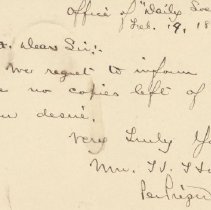 Office of "Daily
Feb. 19, 18
Dear Sir:
We regret to inform
no copies left of
desire.
Very Truly
Wm. H.
Per